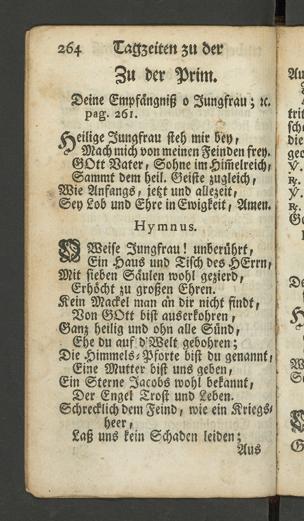 264 Tagzeiten zu der
Zu der Prim.
Deine Empfängniß o Jungfrau; ꝛc.
pag. 261.
Heilige Jungfrau steh mir bey,
Mach mich von meinen Feinden frey.
GOtt Vater, Sohne im Him̃elreich,
Sammt dem heil. Geiste zugleich,
Wie Anfangs, jetzt und allezeit,
Sey Lob und Ehre in Ewigkeit, Amen.
Hymnus.
O Weise Jungfrau! unberührt,
Ein Haus und Tisch des HErrn,
Mit sieben Säulen wohl gezierd,
Erhöcht zu großen Ehren.
Kein Mackel man an dir nicht findt,
Von GOtt bist auserkohren,
Ganz heilig und ohn alle Sünd,
Ehe du auf d'Welt gebohren;
Die Himmels-Pforte bist du genannt,
Eine Mutter bist uns geben,
Ein Sterne Jacobs wohl bekannt,
Der Engel Trost und Leben.
Schrecklich dem Feind, wie ein Kriegs-
heer,
Laß uns kein Schaden leiden;
Aus